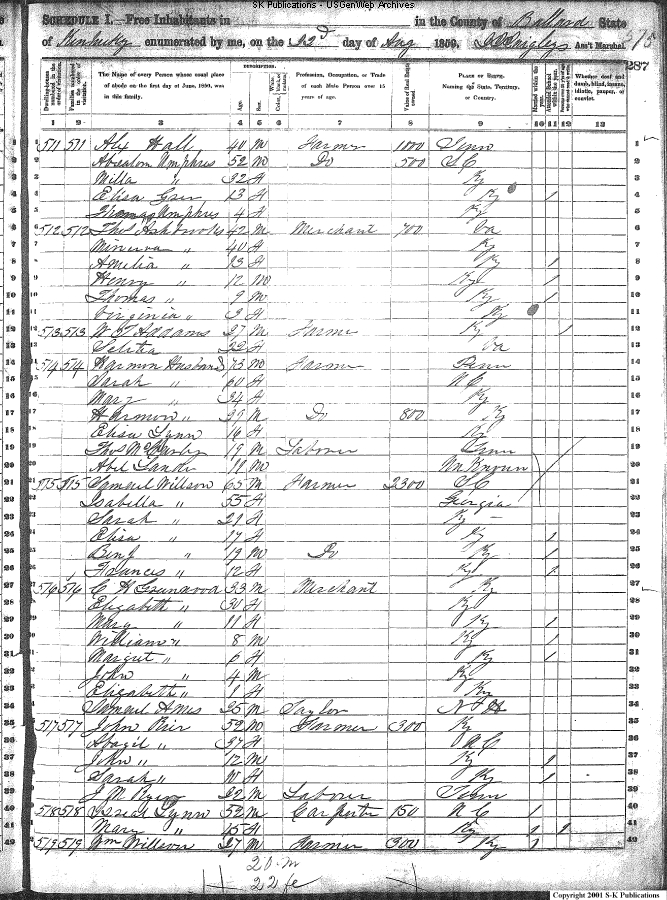 S-K Publications - USGenWeb Archives
SCHEDULE I.—Free Inhabitants in in the County of Ballard State
of Kentucky enumerated by me, on the 22d day of Aug 1850. Ass't Marshal. 287
DESCRIPTION.
Dwelling-houses numbered in the order of visitation.
Families numbered in the order of visitation.
The Name of every Person whose usual place of abode on the first day of June, 1850, was in this family.
Age. Sex.
Profession, Occupation, or Trade of each Male Person over 15 years of age.
Value of Real Estate owned.
PLACE OF BIRTH. Naming the State, Territory, or Country.
Married within the year.
Attended School within the year.
Whether deaf and dumb, blind, insane, idiotic, pauper, or convict.
1 2 3 4 5 6 7 8 9 10 11 12 13
1 511 511 Alex Hall 40 M Farmer 1000 Tenn 1
2 Absalom Umphres 52 M Do 500 S C 2
3 Milla " 32 F Ky 3
4 Elisa 13 F Ky 1 4
5 Thomas Umphres 4 Ky 5
6 512 512 Thos Ashbrooks 42 M Merchant 700 Va 6
7 Minerva " 40 F Ky 7
8 Amelia " 13 F Ky 1 8
9 Henry " 12 M Ky 1 9
10 Thomas " 9 M Ky 1 10
11 Virginia " 3 F Ky 11
12 513 513 W T Addams 27 M Farmer Ky 12
13 Letitia 22 F Va 13
14 514 514 Harmon Husband 73 M Farmer Penn 14
15 Sarah " 60 F N C 15
16 Mary " 34 F Ky 16
17 Harmon " 29 M Do 800 Ky 17
18 Elisa Lynn 16 F Ky 18
19 Thos 19 M Labourer Tenn 19
20 Abel 11 M Unknown 20
21 515 515 Samuel Willson 65 M Farmer 2300 S C 21
22 Isabella " 55 F Georgia 22
23 Sarah " 21 F Ky 23
24 Elisa " 17 F Ky 1 24
25 Benj " 19 M Do Ky 1 25
26 Frances " 12 F Ky 1 26
27 516 516 C H Greenwood 33 M Merchant Ky 27
28 Elizabeth " 30 F Ky 28
29 Mary " 11 F Ky 1 29
30 William " 8 M Ky 1 30
31 Margret " 6 F Ky 1 31
32 John " 4 M Ky 32
33 Elizabeth " 1 F Ky 33
34 Samuel Ames 25 M Taylor N H 34
35 517 517 John 52 M Farmer 300 Ky 35
36 Abagil " 37 F N C 36
37 John " 12 M Ky 1 37
38 Sarah " 11 F Ky 1 38
39 J M 22 M Labourer Tenn 39
40 518 518 Lynn 52 M Carpenter 150 N C 1 40
41 Mary " 45 F Ky 1 1 41
42 519 519 Wm Willson 27 M Farmer 300 Ky 1 42
20 M
22 fe
Copyright 2001 S-K Publications